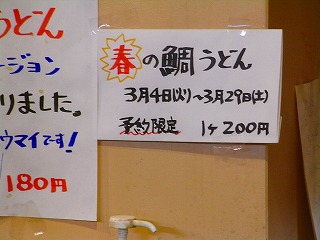 うどん
ージョン
りました。
ウマイです!
180円
春の鯛うどん
3月4日(火)~3月29日(土)
予約限定 1ヶ200円